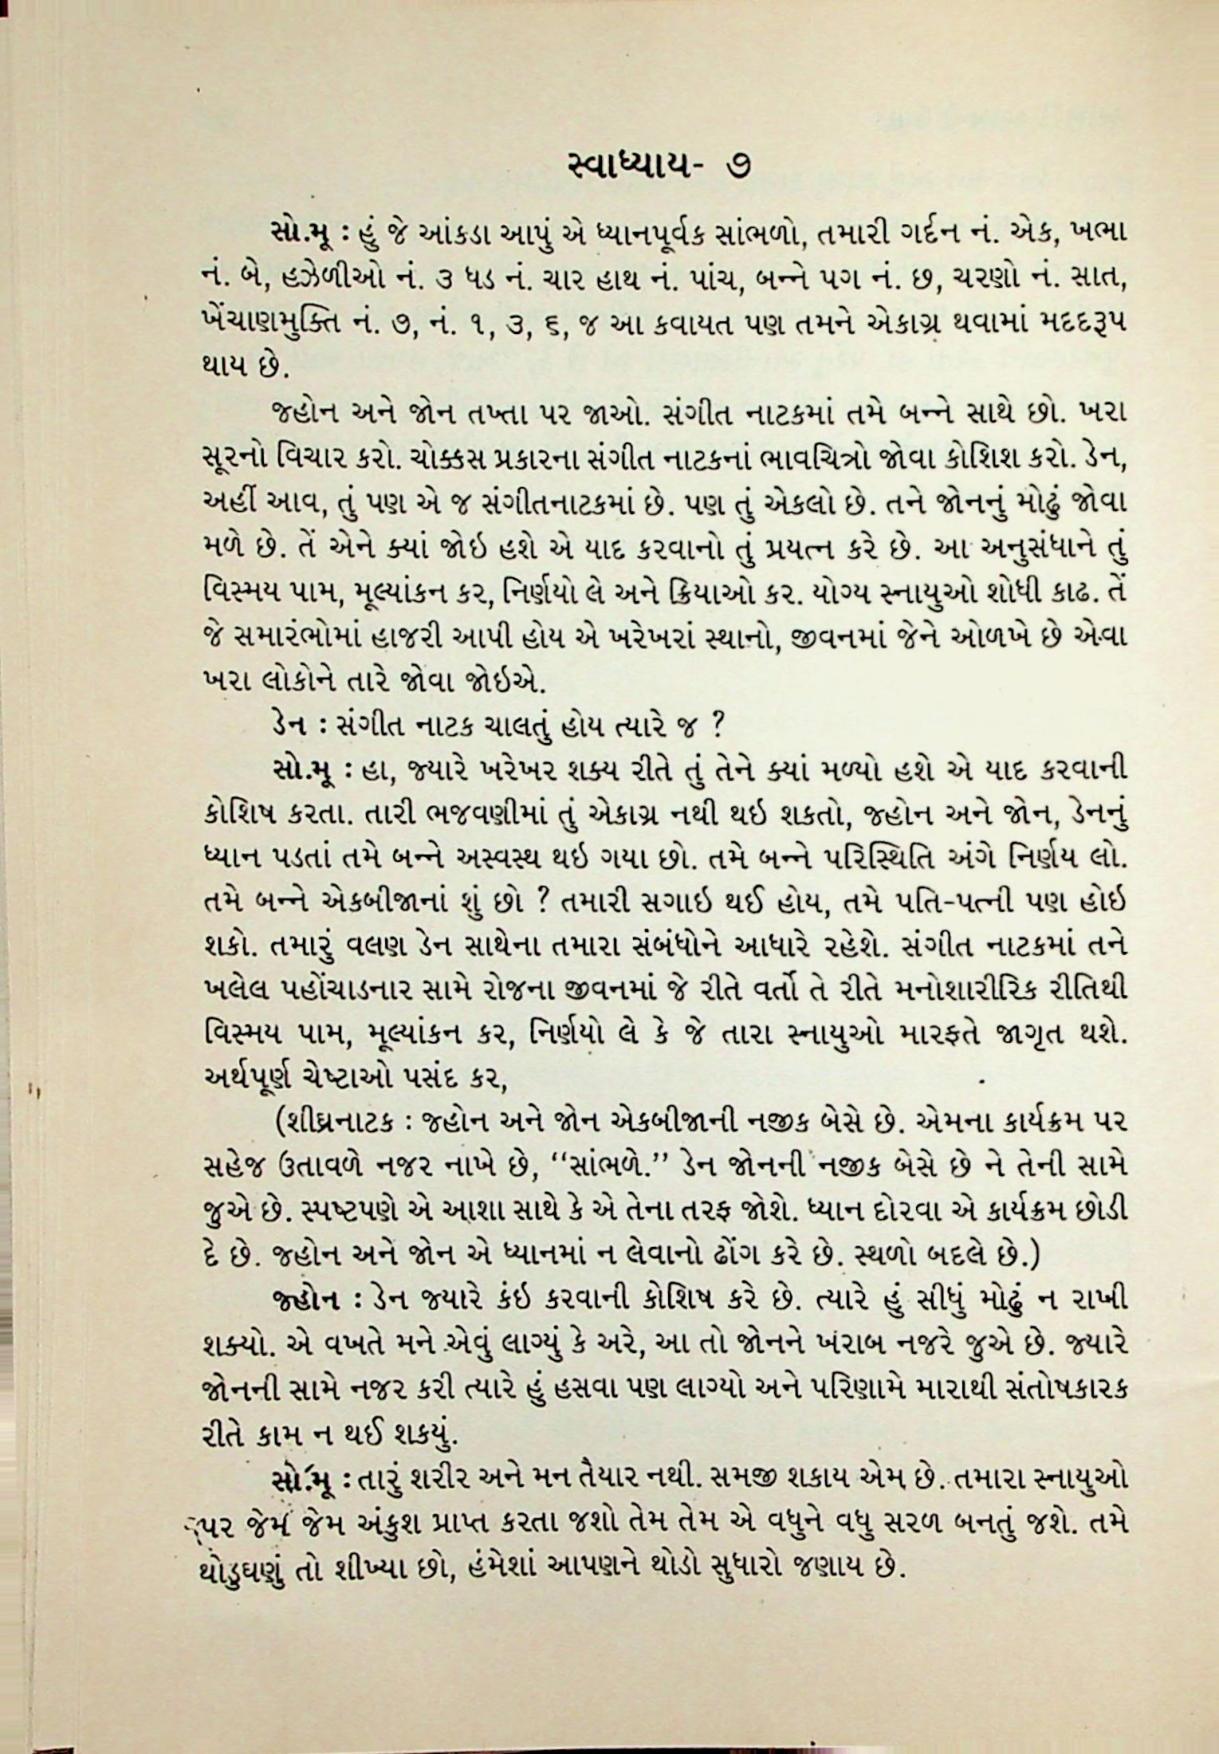 સ્વાધ્યાય- ૭
સો.મૂ : હું જે આંકડા આપું એ ધ્યાનપૂર્વક સાંભળો, તમારી ગર્દન નં. એક, ખભા
નં. બે, હઝેળીઓ નં. ૩ ધડ નં. ચાર હાથ નં. પાંચ, બન્ને પગ નં. છ, ચરણો નં. સાત,
ખેંચાણમુક્તિ નં. ૭, નં. ૧, ૩, ૬, જ આ કવાયત પણ તમને એકાગ્ર થવામાં મદદરૂપ
થાય છે.
જ્હોન અને જોન તખ્તા પર જાઓ. સંગીત નાટકમાં તમે બન્ને સાથે છો. ખરા
સૂરનો વિચાર કરો. ચોક્કસ પ્રકારના સંગીત નાટકનાં ભાવચિત્રો જોવા કોશિશ કરો. ડેન,
અહીં આવ, તું પણ એ જ સંગીતનાટકમાં છે. પણ તું એકલો છે. તને જોનનું મોઢું જોવા
મળે છે. તેં એને ક્યાં જોઇ હશે એ યાદ કરવાનો તું પ્રયત્ન કરે છે. આ અનુસંધાને તું
વિસ્મય પામ, મૂલ્યાંકન કર, નિર્ણયો લે અને ક્રિયાઓ કર. યોગ્ય સ્નાયુઓ શોધી કાઢ. તેં
જે સમારંભોમાં હાજરી આપી હોય એ ખરેખરાં સ્થાનો, જીવનમાં જેને ઓળખે છે એવા
ખરા લોકોને તારે જોવા જોઇએ.
ડેન : સંગીત નાટક ચાલતું હોય ત્યારે જ ?
સો.મૂ : હા, જ્યારે ખરેખર શક્ય રીતે તું તેને ક્યાં મળ્યો હશે એ યાદ કરવાની
કોશિષ કરતા. તારી ભજવણીમાં તું એકાગ્ર નથી થઇ શકતો, જ્હોન અને જોન, ડેનનું
ધ્યાન પડતાં તમે બન્ને અસ્વસ્થ થઇ ગયા છો. તમે બન્ને પરિસ્થિતિ અંગે નિર્ણય લો.
તમે બન્ને એકબીજાનાં શું છો ? તમારી સગાઇ થઈ હોય, તમે પતિ-પત્ની પણ હોઇ
શકો. તમારું વલણ ડેન સાથેના તમારા સંબંધોને આધારે રહેશે. સંગીત નાટકમાં તને
ખલેલ પહોંચાડનાર સામે રોજના જીવનમાં જે રીતે વર્તો તે રીતે મનોશારીરિક રીતિથી
વિસ્મય પામ, મૂલ્યાંકન કર, નિર્ણયો લે કે જે તારા સ્નાયુઓ મારફતે જાગૃત થશે.
અર્થપૂર્ણ ચેષ્ટાઓ પસંદ કર,
(શીઘ્રનાટક : જ્હોન અને જોન એકબીજાની નજીક બેસે છે. એમના કાર્યક્રમ પર
સહેજ ઉતાવળે નજર નાખે છે, “સાંભળે.” ડેન જોનની નજીક બેસે છે ને તેની સામે
જુએ છે. સ્પષ્ટપણે એ આશા સાથે કે એ તેના તરફ જોશે. ધ્યાન દોરવા એ કાર્યક્રમ છોડી
દે છે. જ્હોન અને જોન એ ધ્યાનમાં ન લેવાનો ઢોંગ કરે છે. સ્થળો બદલે છે.)
જ્હોન : ડેન જ્યારે કંઇ કરવાની કોશિષ કરે છે. ત્યારે હું સીધું મોઢું ન રાખી
શક્યો. એ વખતે મને એવું લાગ્યું કે અરે, આ તો જોનને ખરાબ નજરે જુએ છે. જ્યારે
જોનની સામે નજર કરી ત્યારે હું હસવા પણ લાગ્યો અને પરિણામે મારાથી સંતોષકારક
રીતે કામ ન થઈ શક્યું.
સો.મૂ : તારું શરીર અને મન તૈયાર નથી. સમજી શકાય એમ છે. તમારા સ્નાયુઓ
પર જેમ જેમ અંકુશ પ્રાપ્ત કરતા જશો તેમ તેમ એ વધુને વધુ સરળ બનતું જશે. તમે
થોડુઘણું તો શીખ્યા છો, હંમેશાં આપણને થોડો સુધારો જણાય છે.